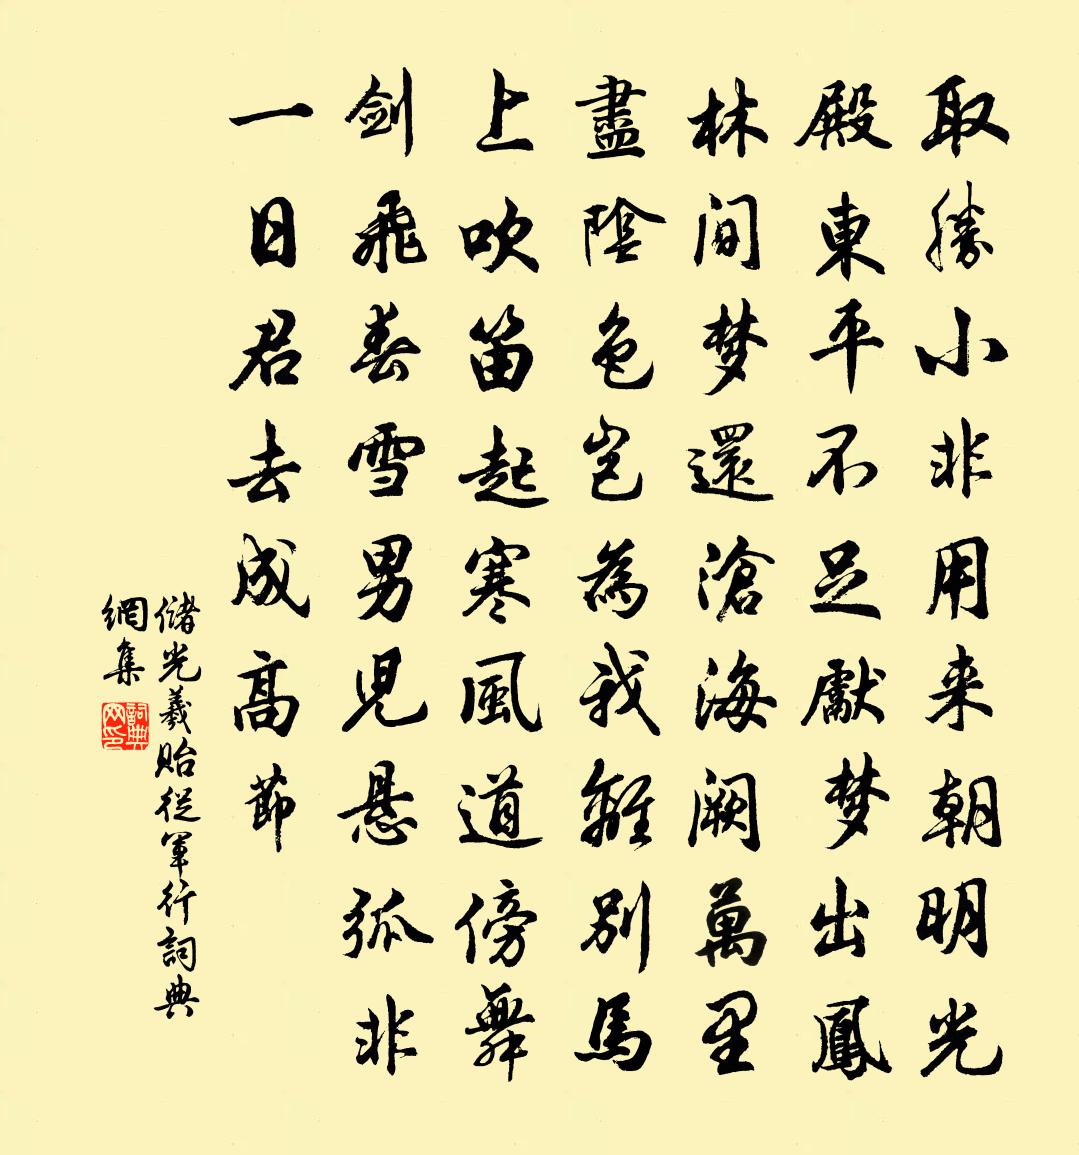 取勝小非用来朝明光
殿東平不足獻梦出鳳
林间梦還滄海阙萬里
盡陰色岂為我離别馬
上吹笛起寒風道傍舞
剑飛春雪男児悬弧非
一日君去成高節
儲光羲貽從軍行詞典
網集
詞典網印